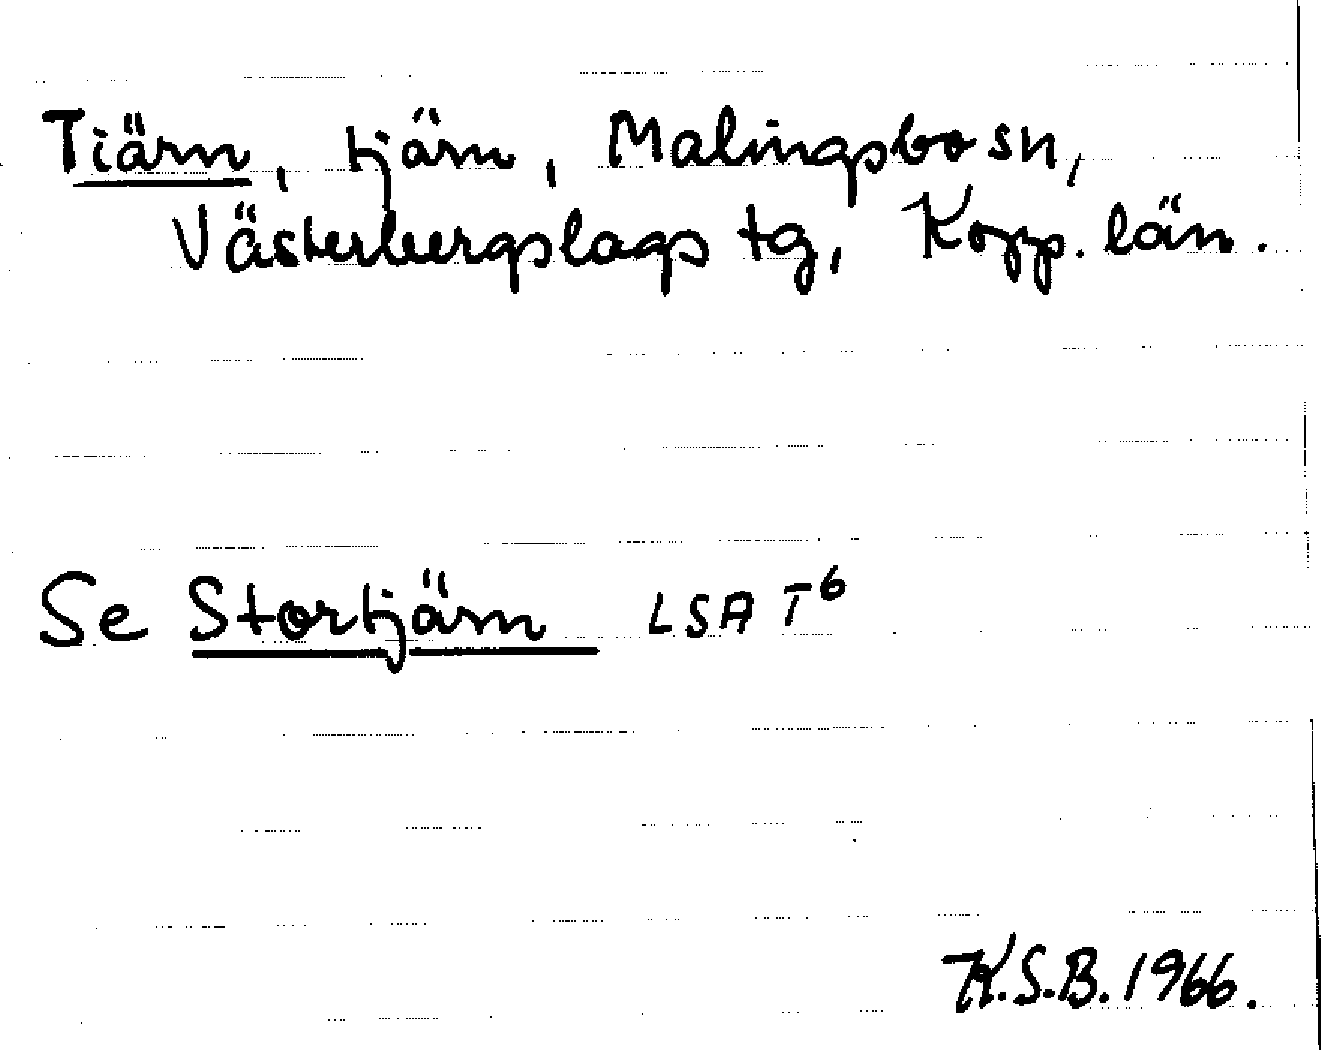 Tiärn, tjärn, Malingsbo sn,
Västerbergslags tg, Kopp. län.
Se Stortjärn LSA T6
K.S.B. 1966.